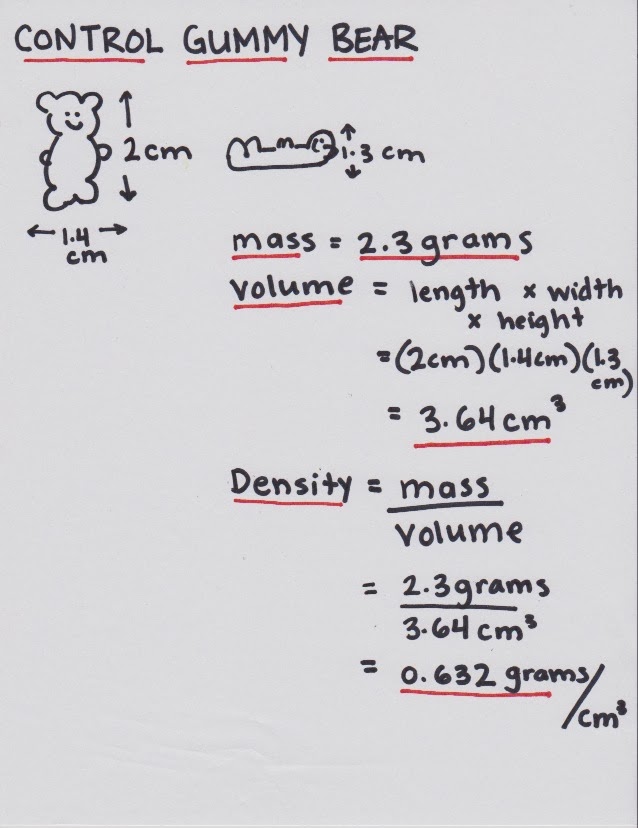 CONTROL GUMMY BEAR
2 cm
1.3 cm
1.4
cm
mass = 2.3 grams
volume = length x width
x height
= (2cm)(1.4cm)(1.3
cm)
= 3.64 cm³
Density = mass
volume
= 2.3 grams
3.64 cm³
= 0.632 grams/
cm³